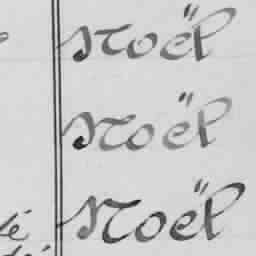 Noël
Noël
té Noël